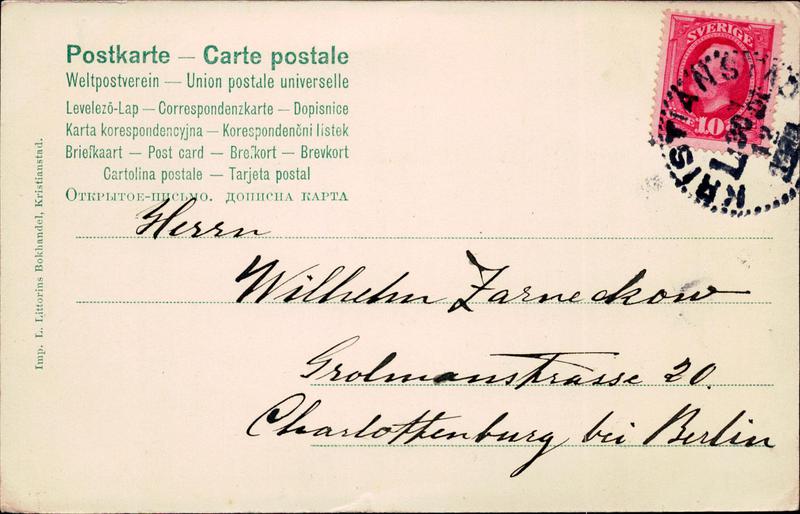 Postkarte — Carte postale
Weltpostverein — Union postale universelle
Levelező-Lap — Correspondenzkarte — Dopisnice
Karta korespondencyjna — Korespondenční lístek
Briefkaart — Post card — Brefkort — Brevkort
Cartolina postale — Tarjeta postal
Открытое-письмо. дописна карта
Imp. L. Littorins Bokhandel, Kristianstad.
SVERIGE
10
KRISTIANSTAD
Herrn
Wilhelm Zarneckow
Grolmanstrasse 20.
Charlottenburg bei Berlin